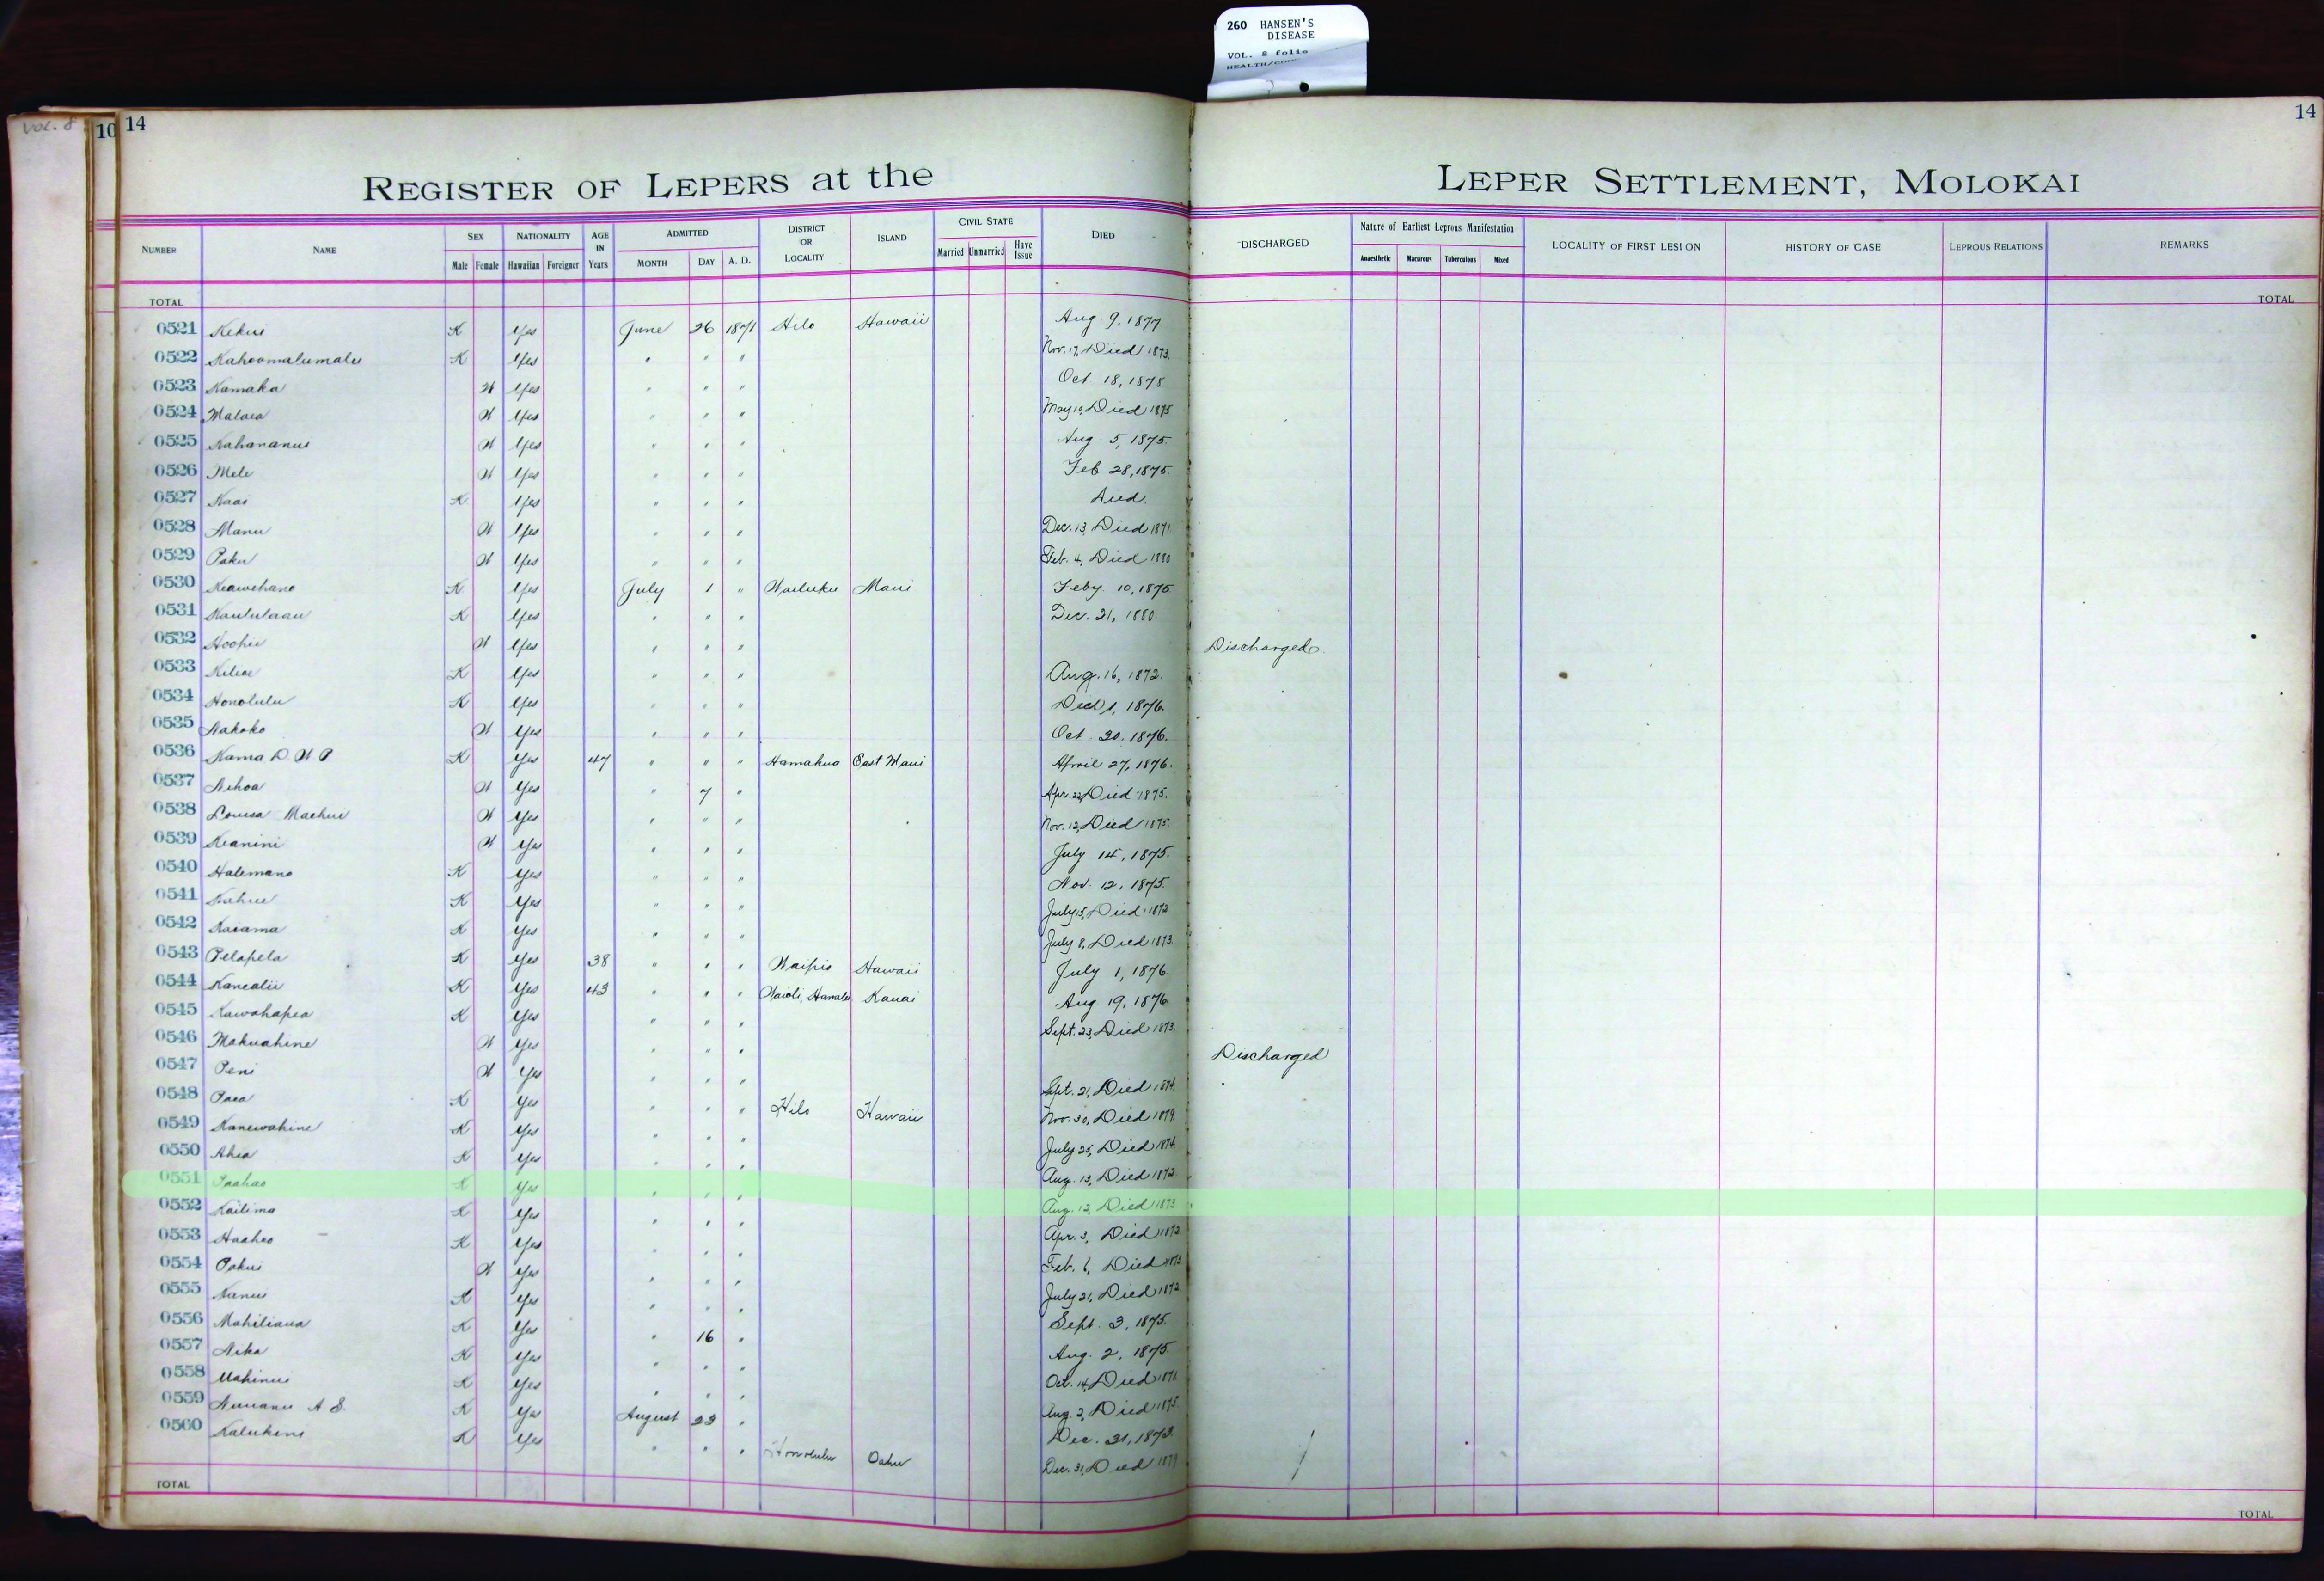 260 HANSEN'S
DISEASE
VOL. 8 folio
HEALTH/
Vol. 8
10 14
14
REGISTER OF LEPERS at the LEPER SETTLEMENT, MOLOKAI
NUMBER NAME SEX NATIONALITY AGE IN Years ADMITTED DISTRICT OR LOCALITY ISLAND CIVIL STATE DIED DISCHARGED Nature of Earliest Leprous Manifestation LOCALITY OF FIRST LESION HISTORY OF CASE LEPROUS RELATIONS REMARKS
Male Female Hawaiian Foreigner MONTH DAY A. D. Married Unmarried Have Issue Anaesthetic Macurous Tuberculous Mixed
TOTAL TOTAL
0521 Kekui K Yes June 26 1871 Hilo Hawaii Aug 9, 1877
0522 Kahoomalumalu K Yes " " " Nov. 17, Died 1873.
0523 Kamaka W Yes " " " Oct 18, 1875
0524 Malaea W Yes " " " May 10, Died 1875
0525 Kahananui W Yes " " " Aug. 5, 1875.
0526 Mele W Yes " " " Feb 28, 1875.
0527 Kaai K Yes " " " Died.
0528 Manu W Yes " " " Dec. 13, Died 1871
0529 Paku W Yes " " " Feb. 4, Died 1880
0530 Keawehano K Yes July 1 " Wailuku Maui Feby 10, 1875
0531 Kaululaau K Yes " " " Dec. 21, 1880.
0532 Hoohii W Yes " " " Discharged.
0533 Kiliae K Yes " " " Aug. 16, 1872.
0534 Honolulu K Yes " " " 1, 1876.
0535 Nakoko W Yes " " " Oct. 20, 1876.
0536 Kama D. W P K Yes 47 " " " Hamakua East Maui April 27, 1876.
0537 Nihoa W Yes " 7 " Apr. 22, Died 1875.
0538 Louisa Maehui W Yes " " " Nov. 12, Died 1875.
0539 Keanini W Yes " " " July 14, 1875.
0540 Halemano K Yes " " " Nov. 12, 1875.
0541 Kahue K Yes " " " July 15, Died 1872
0542 Kaiama K Yes " " " July 8, Died 1873.
0543 Pelapela K Yes 38 " " " Waipio Hawaii July 1, 1876
0544 Kanealii K Yes 43 " " " Waioli, Hanalei Kauai Aug 19, 1876
0545 Kawahapea K Yes " " " Sept. 23, Died 1873.
0546 Makuahine W Yes " " " Discharged
0547 Peni W Yes " " " Sept. 21, Died 1874.
0548 Paea K Yes " " " Hilo Hawaii Nov. 30, Died 1879.
0549 Kanewahine K Yes " " " July 25, Died 1874.
0550 Ahia K Yes " " " Aug. 13, Died 1872.
0551 K Yes " " " Aug. 12, Died 1873
0552 Kailima K Yes " " " Apr. 3, Died 1872
0553 Haaheo K Yes " " " Feb. 6, Died 1873
0554 Pakui W Yes " " " July 21, Died 1872
0555 Nanui K Yes " " " Sept. 3, 1875.
0556 Mahiliaua K Yes " 16 " Aug. 2, 1875.
0557 Nika K Yes " " " Oct. 14, Died 1871
0558 Mahinui K Yes " " " Aug. 2, Died 1875.
0559 Nuuanu A S. K Yes August 23 " Dec. 31, 1873.
0560 Kalukini K Yes " " " Honolulu Oahu Dec. 31, Died 1879
TOTAL TOTAL